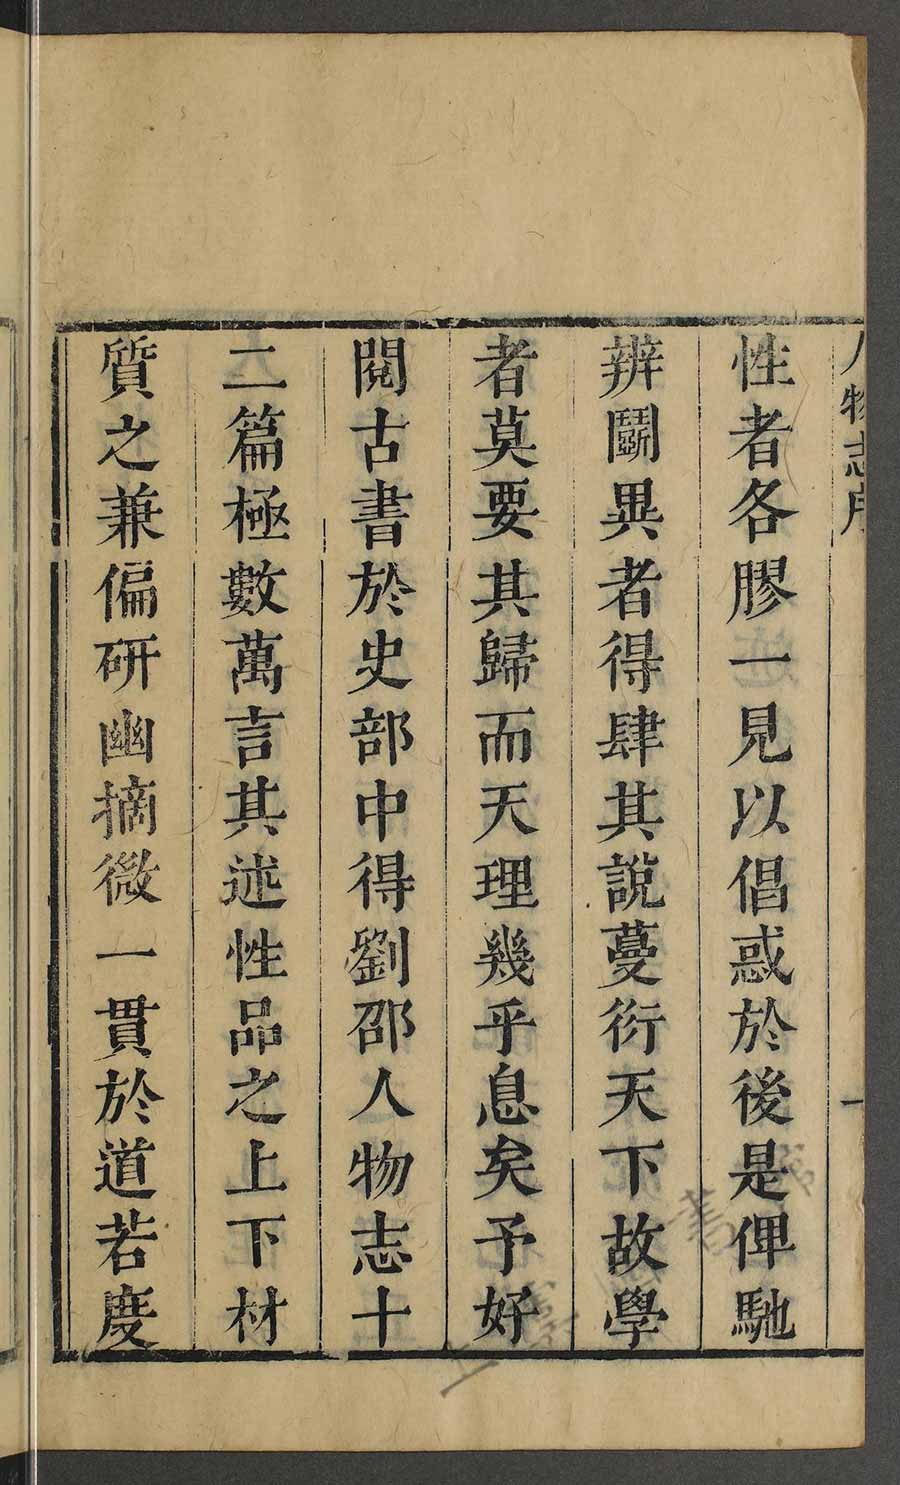 人物志序
一
性者各膠一見以倡惑於後是俾馳
辨鬭異者得肆其說蔓衍天下故學
者莫要其歸而天理幾乎息矣予好
閱古書於史部中得劉邵人物志十
二篇極數萬言其述性品之上下材
質之兼偏研幽摘微一貫於道若度